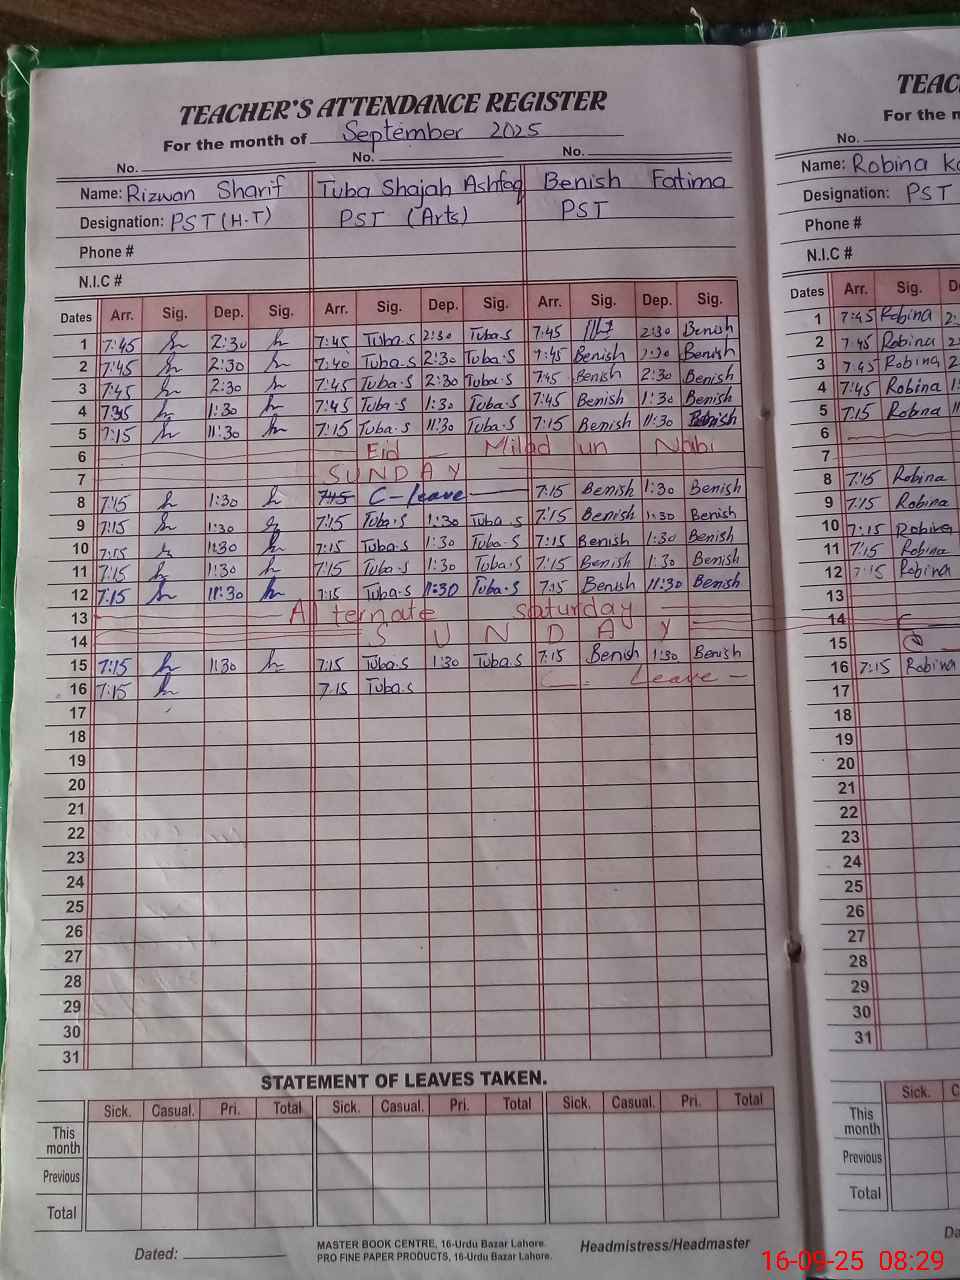 TEACHER'S ATTENDANCE REGISTER
For the month of September 2025
No. No. No.
Name: Rizwan Sharif Tuba Shajah Ashfaq Benish Fatima
Designation: PST (H.T) PST (Arts) PST
Phone #
N.I.C #
Dates Arr. Sig. Dep. Sig. Arr. Sig. Dep. Sig. Arr. Sig. Dep. Sig.
1 7:45 2:30 7:45 Tuba.S 2:30 Tuba.S 7:45 2:30 Benish
2 7:45 2:30 7:40 Tuba.S 2:30 Tuba.S 7:45 Benish 2:30 Benish
3 7:45 2:30 7:45 Tuba.S 2:30 Tuba.S 7:45 Benish 2:30 Benish
4 1:30 7:45 Tuba.S 1:30 Tuba.S 7:45 Benish 1:30 Benish
5 7:15 11:30 7:15 Tuba.S 11:30 Tuba.S 7:15 Benish 11:30 Benish
6 Eid Milad un Nabi
7 SUNDAY
8 7:15 1:30 7:45 C-leave 7:15 Benish 1:30 Benish
9 7:15 1:30 7:15 Tuba.S 1:30 Tuba.S 7:15 Benish 1:30 Benish
10 7:15 1:30 7:15 Tuba.S 1:30 Tuba.S 7:15 Benish 1:30 Benish
11 7:15 1:30 7:15 Tuba.S 1:30 Tuba.S 7:15 Benish 1:30 Benish
12 7:15 11:30 7:15 Tuba.S 11:30 Tuba.S 7:15 Benish 11:30 Benish
13 Alternate saturday
14 SUNDAY
15 7:15 1:30 7:15 Tuba.S 1:30 Tuba.S 7:15 Benish 1:30 Benish
16 7:15 7:15 Tuba.S C. Leave
17
18
19
20
21
22
23
24
25
26
27
28
29
30
31
STATEMENT OF LEAVES TAKEN.
Sick. Casual. Pri. Total Sick. Casual. Pri. Total Sick. Casual. Pri. Total
This month
Previous
Total
Dated:
MASTER BOOK CENTRE, 16-Urdu Bazar Lahore.
PRO FINE PAPER PRODUCTS, 16-Urdu Bazar Lahore.
Headmistress/Headmaster
TEAC
For the m
No.
Name: Robina Ko
Designation: PST
Phone #
N.I.C #
Dates Arr. Sig. D
1 7:45 Robina 2:
2 7:45 Robina 2
3 7:45 Robina 2
4 7:45 Robina 1:
5 7:15 Robina 11
6
7
8 7:15 Robina
9 7:15 Robina
10 7:15 Robina
11 7:15 Robina
12 7:15 Robina
13
14
15
16 7:15 Robina
17
18
19
20
21
22
23
24
25
26
27
28
29
30
31
Sick. C
This month
Previous
Total
Da
16-09-25 08:29